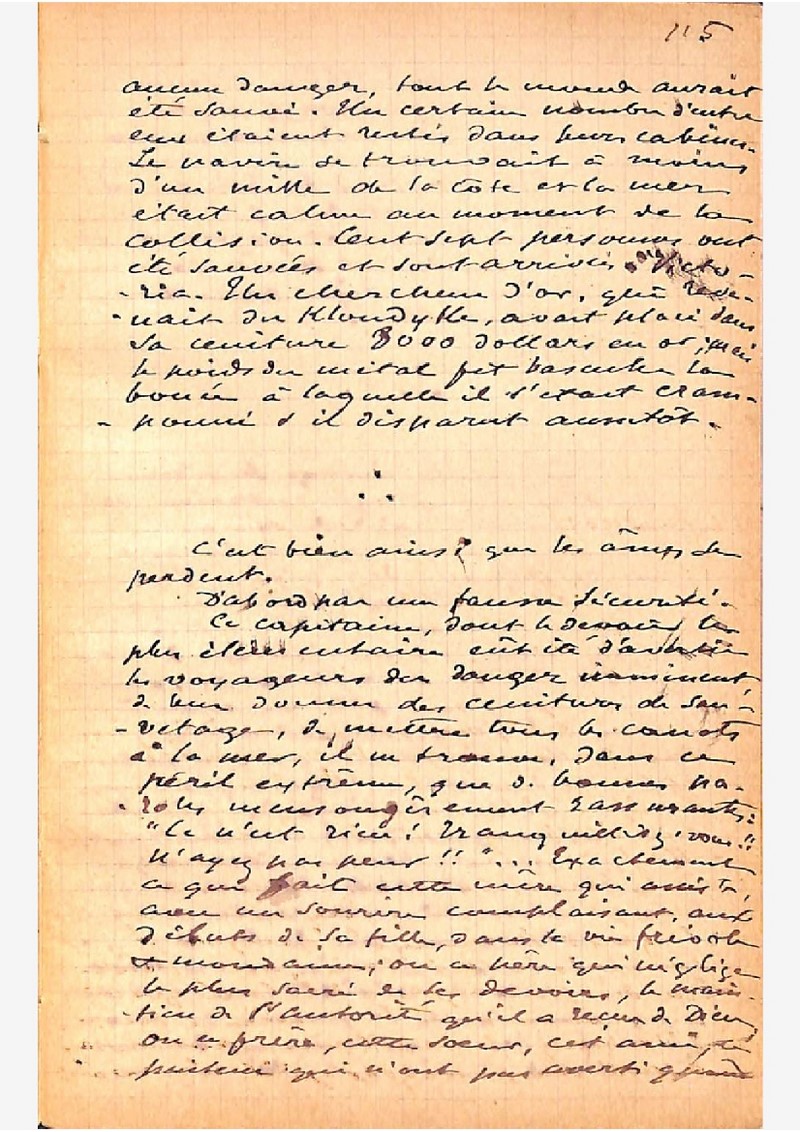 115
aucun danger, tout le monde aurait
été sauvé. Un certain nombre d'entre
eux étaient restés dans leurs cabines.
Le navire se trouvait à moins
d'un mille de la côte et la mer
était calme au moment de la
collision. Cent sept personnes ont
été sauvées et sont arrivées à Victo-
-ria. Un chercheur d'or, qui reve-
-nait du Klondyke, avait placé dans
sa ceinture 8000 dollars en or ; mais
le poids du métal fit basculer la
bouée à laquelle il s'était cram-
-ponné & il disparut aussitôt.
C'est bien ainsi que les âmes se
perdent.
D'abord par une fausse sécurité.
Ce capitaine, dont le devoir le
plus élémentaire eût été d'avertir
les voyageurs du danger imminent
de leur donner des ceintures de sau-
-vetage, de mettre tous les canots
à la mer, il ne trouve, dans ce
péril extrême, que de bonnes pa-
-roles mensongèrement rassurantes :
"Ce n'est rien ! Tranquillisez-vous !!
N'ayez pas peur !! "... Exactement
ce que fait cette mère qui assiste,
avec un sourire complaisant, aux
débuts de sa fille, dans la vie frivole
& mondaine ; ou ce père qui néglige
le plus sacré de ses devoirs, le main-
-tien de l'autorité qu'il a reçue de Dieu,
ou ce frère, cette soeur, cet ami, ce
pasteur qui n'ont pas averti quand